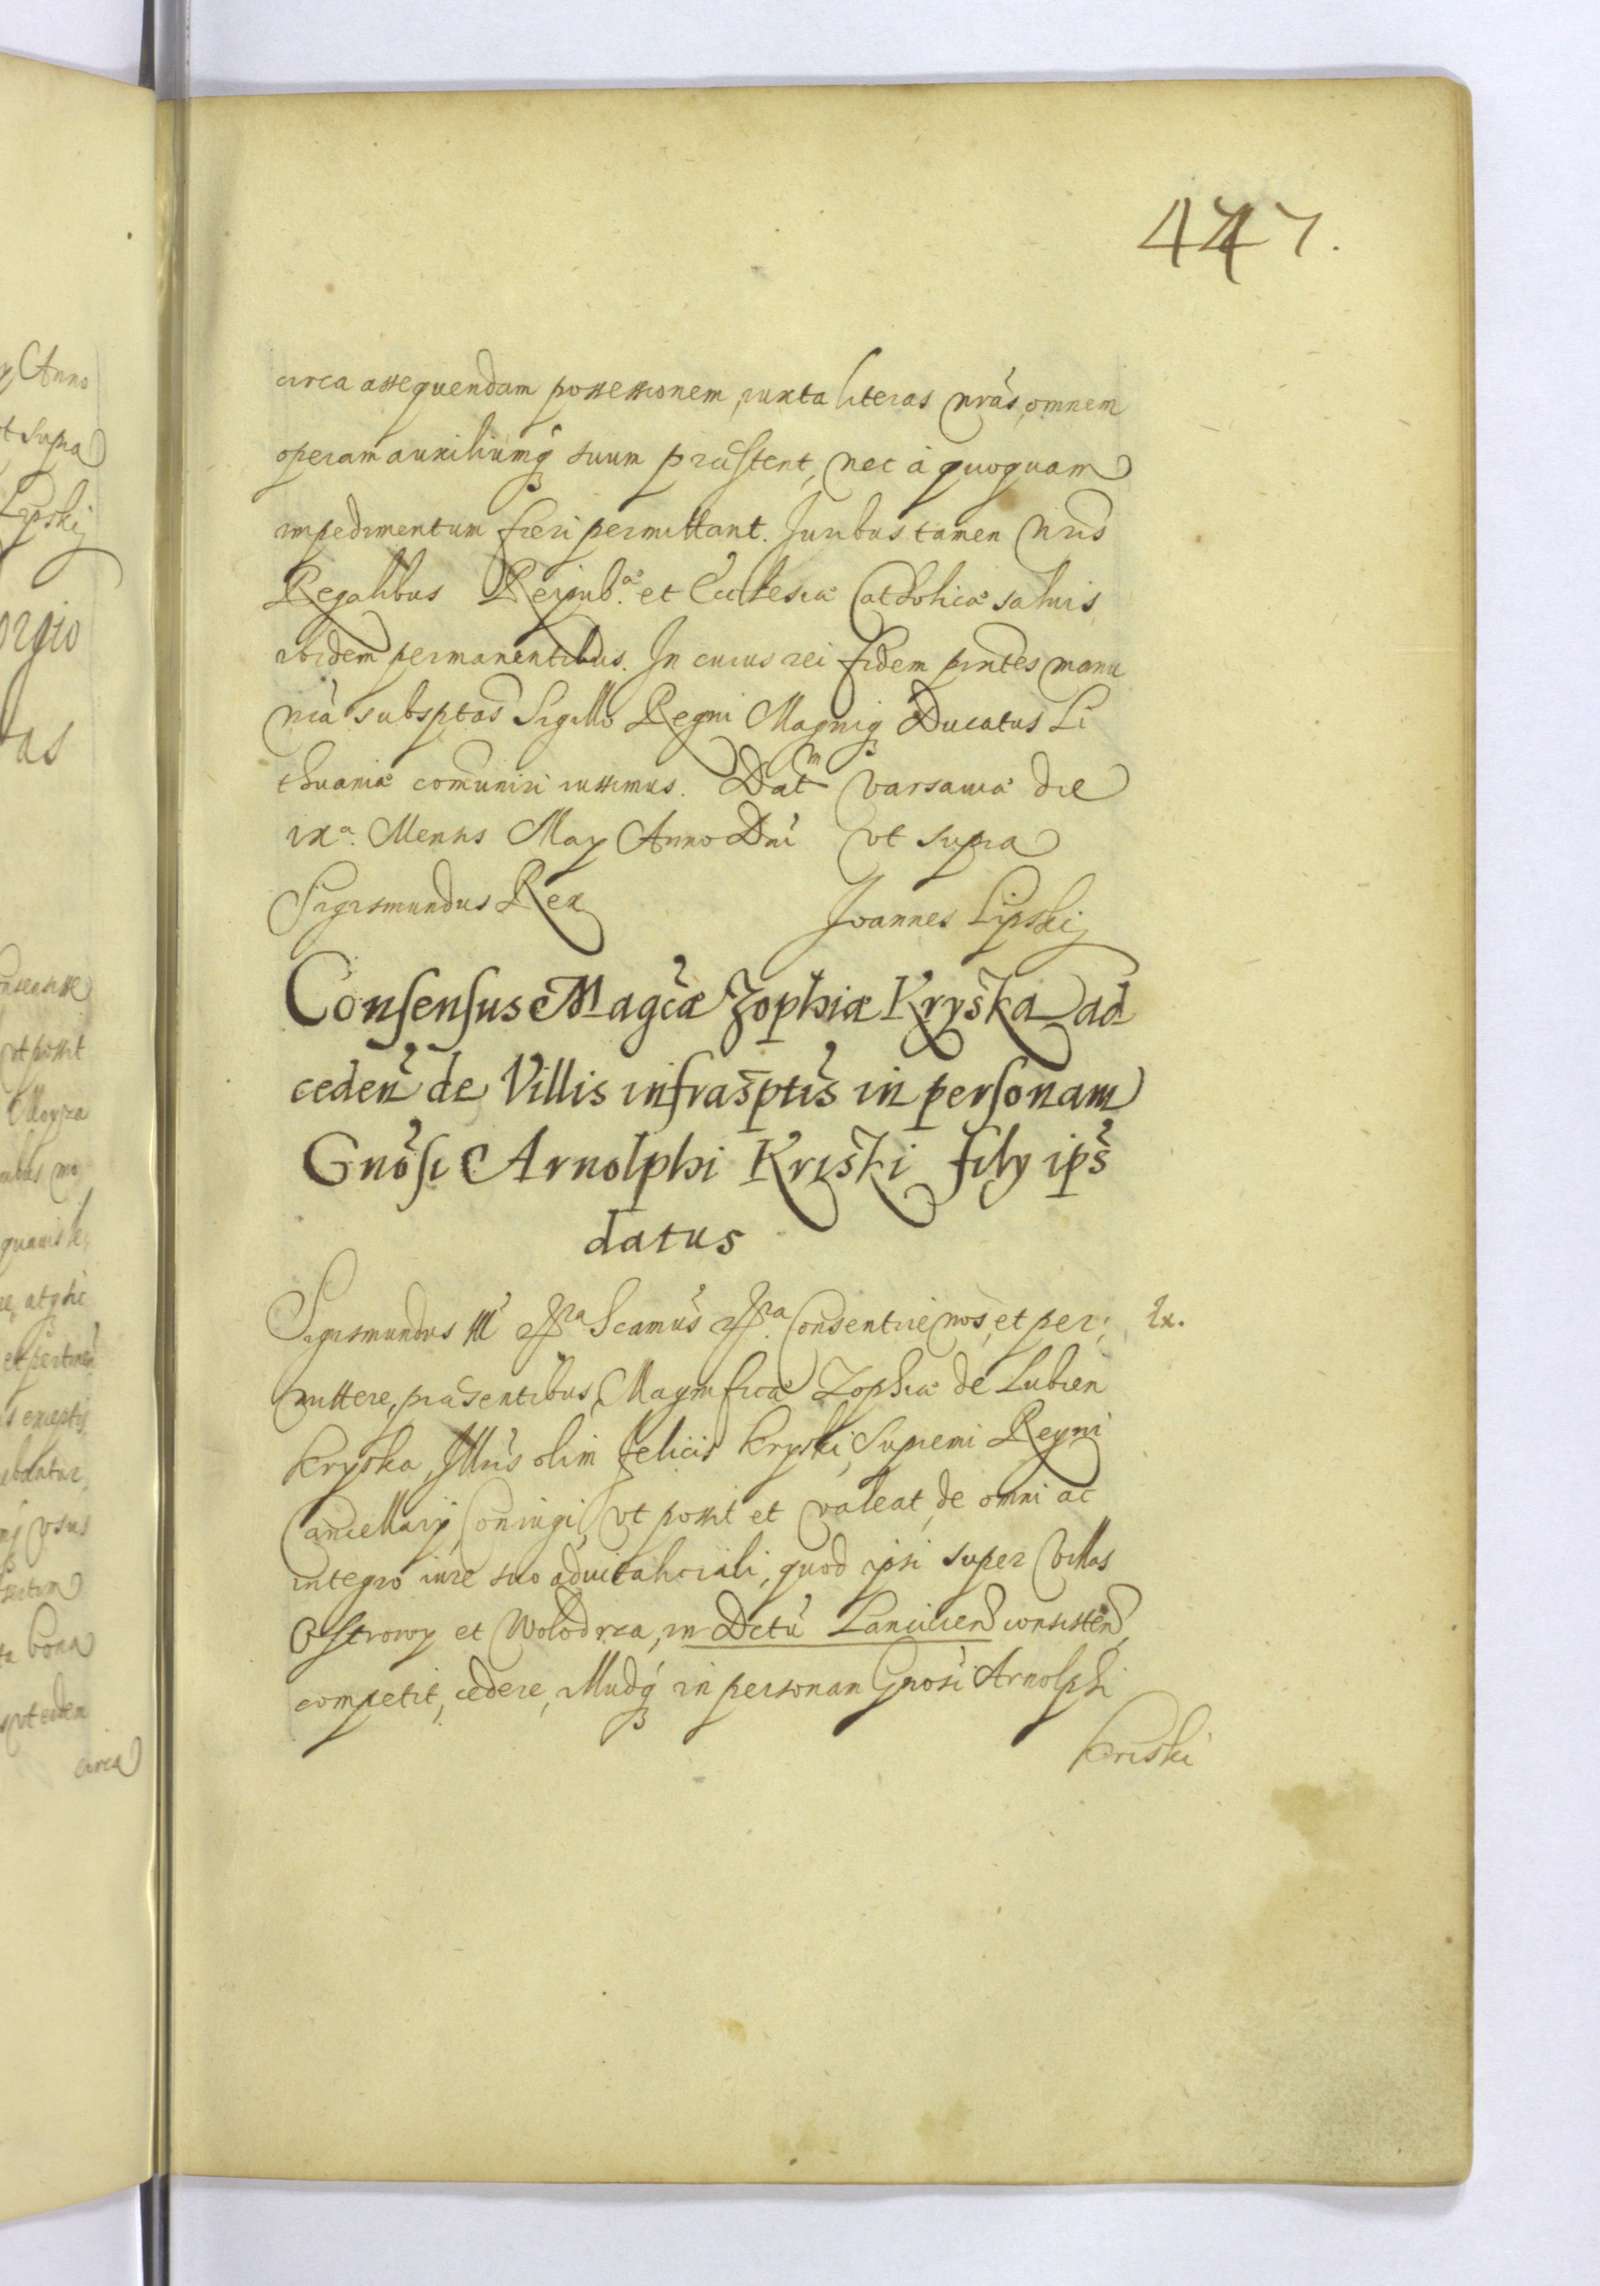 447.
circa assequendam possessionem, iuxta literas nrãs, omnem
operam auxiliumq suum præstent, nec à quoquam
impedimentum fieri permittant. Juribus tamen nris
Regalibus Reipub.æ et Ecclesiæ Catholicæ saluis
ibidem permanentibus. In cuius rei fidem pntes manu
nrã subsptas Sigillo Regni Magniq Ducatus Li
thuaniæ comuniri iussimus. Datm Varsauiæ die
ixa. Mensis May Anno Dni vt supra
Sigismundus Rex Joannes Lipskj
Consensus Magcæ Zophiæ Kryska ad
ceden de Villis infrasptis in personam
Gnosi Arnolphi Kriski fily ips
datus
Sigismundus III etc Scamus etc Consentire nos, et per:
mittere, præsentibus, Magnificæ Zophiæ de Lubien
Kryska, Illris olim felicis Kryski, Supremi Regni
Cancellarij Coniugi, vt possit et valeat, de omni ac
integro iure suo aduitalitiali, quod ipsi super Villas
Ostrowy et Wolodrza, in Dctu Lanicien consisten,
competit, cedere, illudq in personam Gnosi Arnolphi
Kriski
Ex.
y Anno
vt supra
Lipskj
orgio
tas
onsensisse
vt possit
quamis
et pertinen
s exceptis
vsus
bona
circa